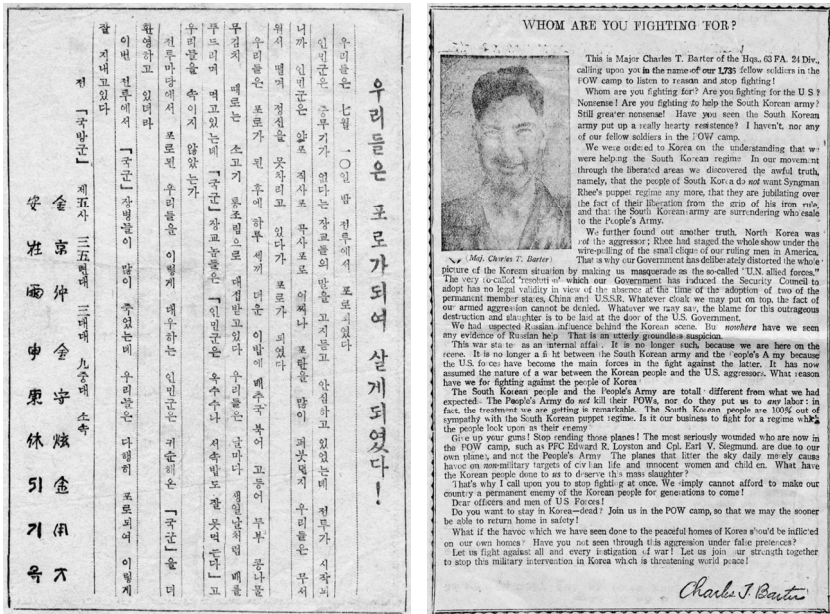 우리들은 포로가되여 살게되였다!
우리들은 七월 一○일 밤 전투에서 포로되였다
인민군은 중무기가 없다는 장교들의 말을 고지듣고 안심하고 있었는데 전투가 시작되
니까 인민군은 야포 직사포 곡사포로 어찌나 포탄을 많이 퍼붓던지 우리들은 무서
워서 떨며 정신을 못차리고 있다가 포로가 되였다
우리들은 포로가 된 후에 하루 세끼 더운 이밥에 배추국 북어 고등어 두부 콩나물
무김치 때로는 소고기 통조림으로 대접받고있다 우리들은 날마다 생일날처럼 배를
뚜드리며 먹고있는데 「국군」장교놈들은 「인민군은 옥수수나 서속밥도 잘 못먹는다」고
우리들을 속이지 않았는가
전투마당에서 포로된 우리들을 이렇게 대우하는 인민군은 귀순해온 「국군」을 더
환영하고 있더라
이번 전투에서 「국군」장병들이 많이 죽었는데 우리들은 다행히 포로되여 이렇게
잘 지내고있다
전 「국방군」 제五사 三五련대 三대대 九중대 소속
金京仲 金守炫 金用大
安在 申東休
WHOM ARE YOU FIGHTING FOR?
This is Major Charles T. Barter of the Hqs., 63 FA. 24 Div.,
calling upon you in the name of our 1,735 fellow soldiers in the
POW camp to listen to reason and stop fighting!
Whom are you fighting for? Are you fighting for the U S ?
Nonsense! Are you fighting to help the South Korean army?
Still greater nonsense! Have you seen the South Korean
army put up a really hearty resistence? I haven't, nor any
of our fellow soldiers in the POW camp.
We were ordered to Korea on the understanding that we
were helping the South Korean regime In our movement
through the liberated areas we discovered the awful truth,
namely, that the people of South Korea do not want Syngman
Rhee's puppet regime any more, that they are jubilating over
the fact of their liberation from the grip of his iron rule,
and that the South Korean army are surrendering wholesale
to the People's Army.
We further found out another truth. North Korea was
not the aggressor; Rhee had staged the whole show under the
wire-pulling of the small clique of our ruling men in America.
(Maj. Charles T. Barter)
That is why our Government has deliberately distorted the whole
picture of the Korean situation by making us masquerade as the so-called "U.N. allied forces."
The very so-called "resolution" which our Government has induced the Security Council to
adopt has no legal validity in view of the absence at the time of the adoption of two of the
permanent member states, China and U.S.S.R. Whatever cloak we may put on top, the fact of
our armed aggression cannot be denied. Whatever we may say, the blame for this outrageous
destruction and slaughter is to be laid at the door of the U.S. Government.
We had uspected Russian influence behind the Korean scene. Bu nowhere have we seen
any evidence of Russian help That is an utterly groundless suspicion.
This war sta te as an internal affair. It is no longer such, because we are here on the
scene. It is no longer a fi ht between the South Korean army and the People's A my because
the U.S. forces have become the main forces in the fight against the latter. It has now
assumed the nature of a war between the Korean people and the U.S. aggressors. What reason
have we for fighting against the people of Korea
The South Korean people and the People's Army are totall different from what we had
expected. The People's Army do not kill their POWs, nor do they put us to any labor: in
fact, the treatment we are getting is remarkable. The South Korean people are 100% out of
sympathy with the South Korean puppet regime. Is it our business to fight for a regime which
the people look upon as their enemy
Give up your guns! Stop sending those planes! The most seriously wounded who are now in
the POW camp, such as PFC Edward R. Loyston and Cpl. Earl V. Siegmund, are due to our
own planes, and not the People's Army The planes that litter the sky daily merely cause
havoc on non-military targets of civilian life and innocent women and child en. What have
the Korean people done to us to deserve this mass slaughter?
That's why I call upon you to stop fighting at once. We simply cannot afford to make our
country a permanent enemy of the Korean people for generations to come!
Dear officers and men of U.S. Forces!
Do you want to stay in Korea—dead? Join us in the POW camp, so that you may the sooner
be able to return home in safety!
What if the havoc which we have seen done to the peaceful homes of Korea should be inflicted
on our own homes? Have you not seen through this aggression under false pretences?
Let us fight against all and every instigation of war! Let us join our strength together
to stop this military intervention in Korea which is threatening world peace!
Charles T. Barter